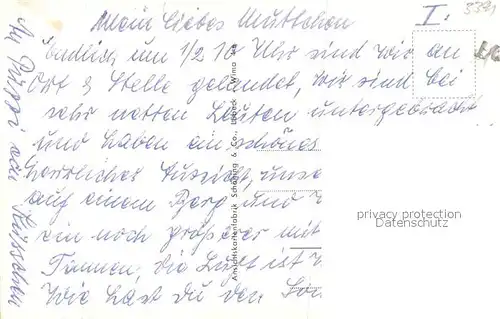 Mein liebes Muttchen I:
Endlich, um 1/2 10 Uhr sind wir an
Ort & Stelle gelandet, wir sind bei
sehr netten Leuten untergebracht
und haben ein schönes
herrlicher Aussicht, unse
auf einem Berg und
ein noch größerer mit
Tannen, die Luft ist
Wie hast du den
An Püppi ein Küsschen
Ansichtskartenfabrik Schöning & Co., Lübeck
privacy protection
Datenschutz